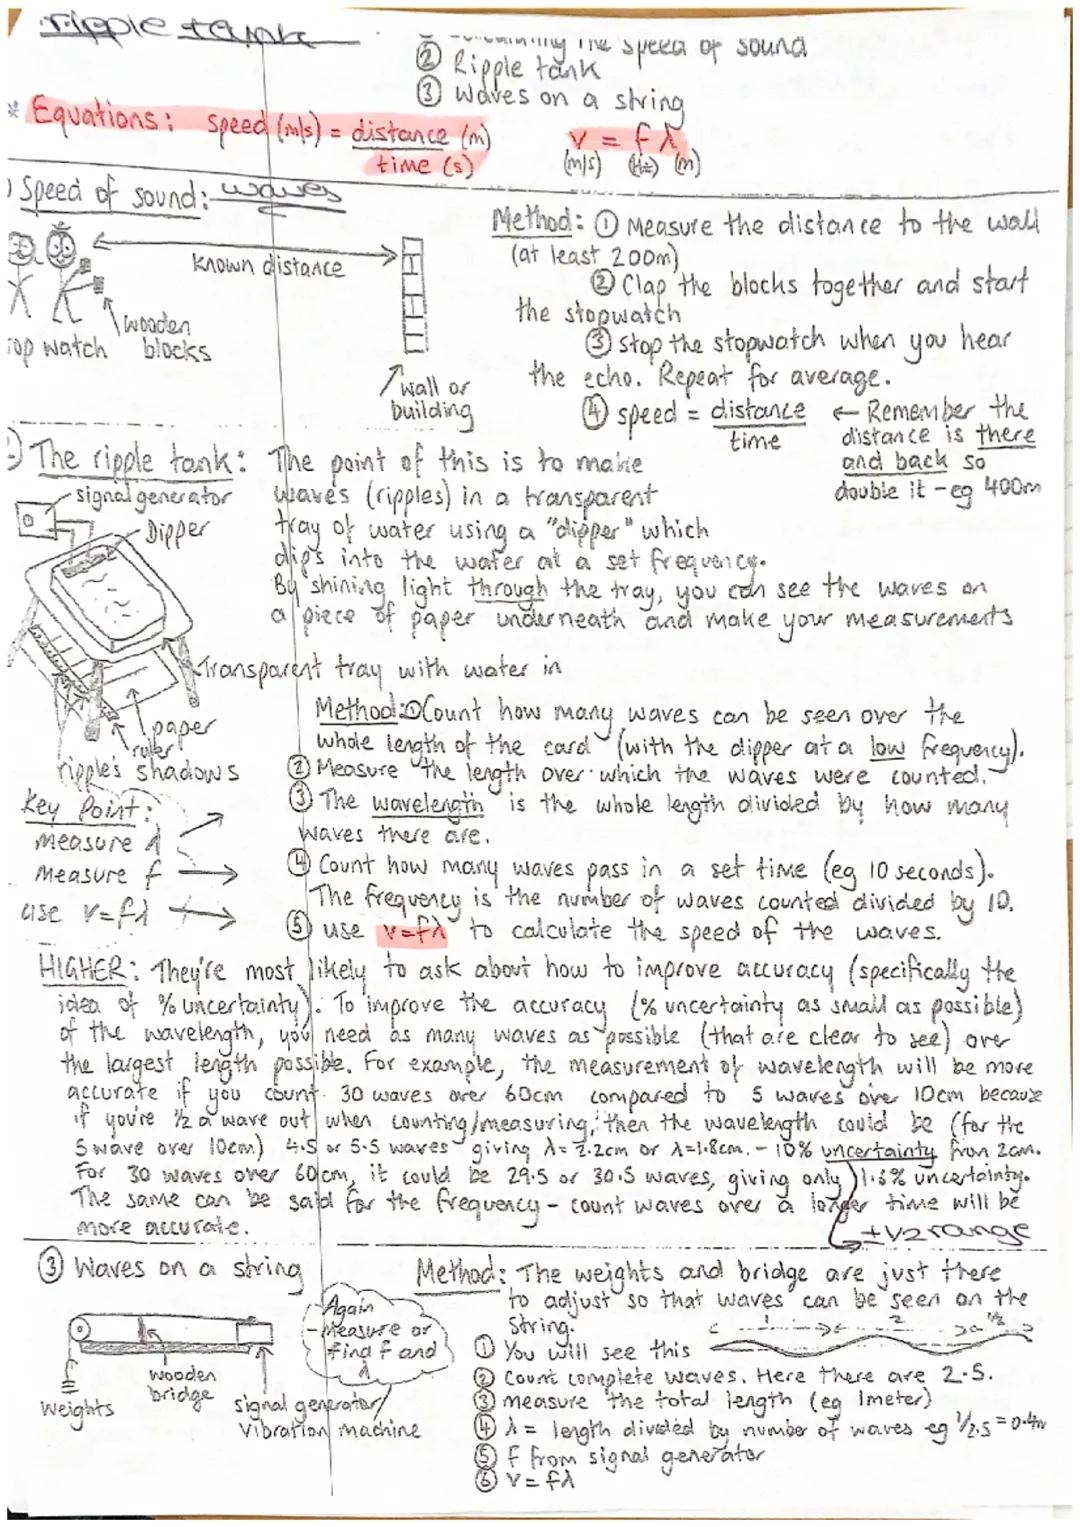 ripple tank
the speed of sound
② Ripple tank
③ waves on a string
* Equations: speed (m/s) = distance (m)
time (s)
v = f λ
(m/s) (Hz) (m)
) Speed of sound: waves
known distance
wooden
blocks
top watch
wall or
building
Method: ① Measure the distance to the wall
(at least 200m)
② Clap the blocks together and start
the stopwatch
③ stop the stopwatch when you hear
the echo. Repeat for average.
④ speed = distance
time
← Remember the
distance is there
and back so
double it - eg 400m
The ripple tank: The point of this is to make
waves (ripples) in a transparent
tray of water using a "dipper" which
dips into the water at a set frequency.
By shining light through the tray, you can see the waves on
a piece of paper underneath and make your measurements
signal generator
Dipper
Transparent tray with water in
paper
ruler
ripple's shadows
Method: ① Count how many waves can be seen over the
whole length of the card (with the dipper at a low frequency).
② Measure the length over which the waves were counted.
③ The wavelength is the whole length divided by how many
waves there are.
④ Count how many waves pass in a set time (eg 10 seconds).
The frequency is the number of waves counted divided by 10.
⑤ use v=fλ to calculate the speed of the waves.
Key Point:
measure λ
measure f →
use v=fλ →
HIGHER: They're most likely to ask about how to improve accuracy (specifically the
idea of % uncertainty): To improve the accuracy (% uncertainty as small as possible)
of the wavelength, you need as many waves as possible (that are clear to see) over
the largest length possible. For example, the measurement of wavelength will be more
accurate if you count 30 waves over 60cm compared to 5 waves over 10cm because
if you're ½ a wave out when counting/measuring, then the wavelength could be (for the
5 wave over 10cm) 4.5 or 5.5 waves giving λ= 2.2cm or λ=1.8cm. - 10% uncertainty from 2cm.
For 30 waves over 60cm, it could be 29.5 or 30.5 waves, giving only 1.6% uncertainty.
The same can be said for the frequency - count waves over a longer time will be
more accurate.
±½ range
③ Waves on a string
weights
wooden
bridge
signal generator/
vibration machine
Again
-Measure or
find f and
λ
Method: The weights and bridge are just there
to adjust so that waves can be seen on the
string.
1 2 ½
① You will see this
② Count complete waves. Here there are 2.5.
③ measure the total length (eg 1meter)
④ λ = length divided by number of waves eg 1/2.5 = 0.4m
⑤ f from signal generator
⑥ v = fλ